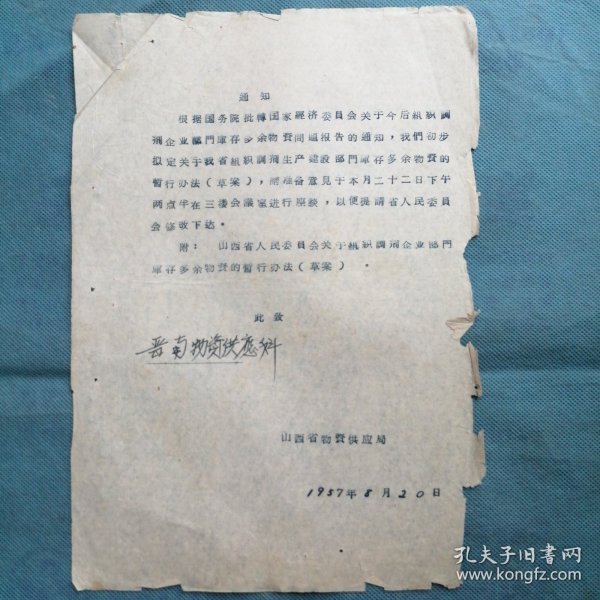 通知
根据国务院批轉国家經济委員会关于今后組织調
剂企业部門庫存多余物資問題报告的通知，我們初步
拟定关于我省組织調剂生产建設部門庫存多余物資的
暫行办法（草案），請准备意見于本月二十二日下午
两点半在三楼会議室进行座談，以便提請省人民委員
会修改下达。
附：山西省人民委員会关于組织調剂企业部門
庫存多余物資的暫行办法（草案）。
此致
晋南物資供应科
山西省物資供应局
1957年8月20日
孔夫子旧书网
www.kongfz.com